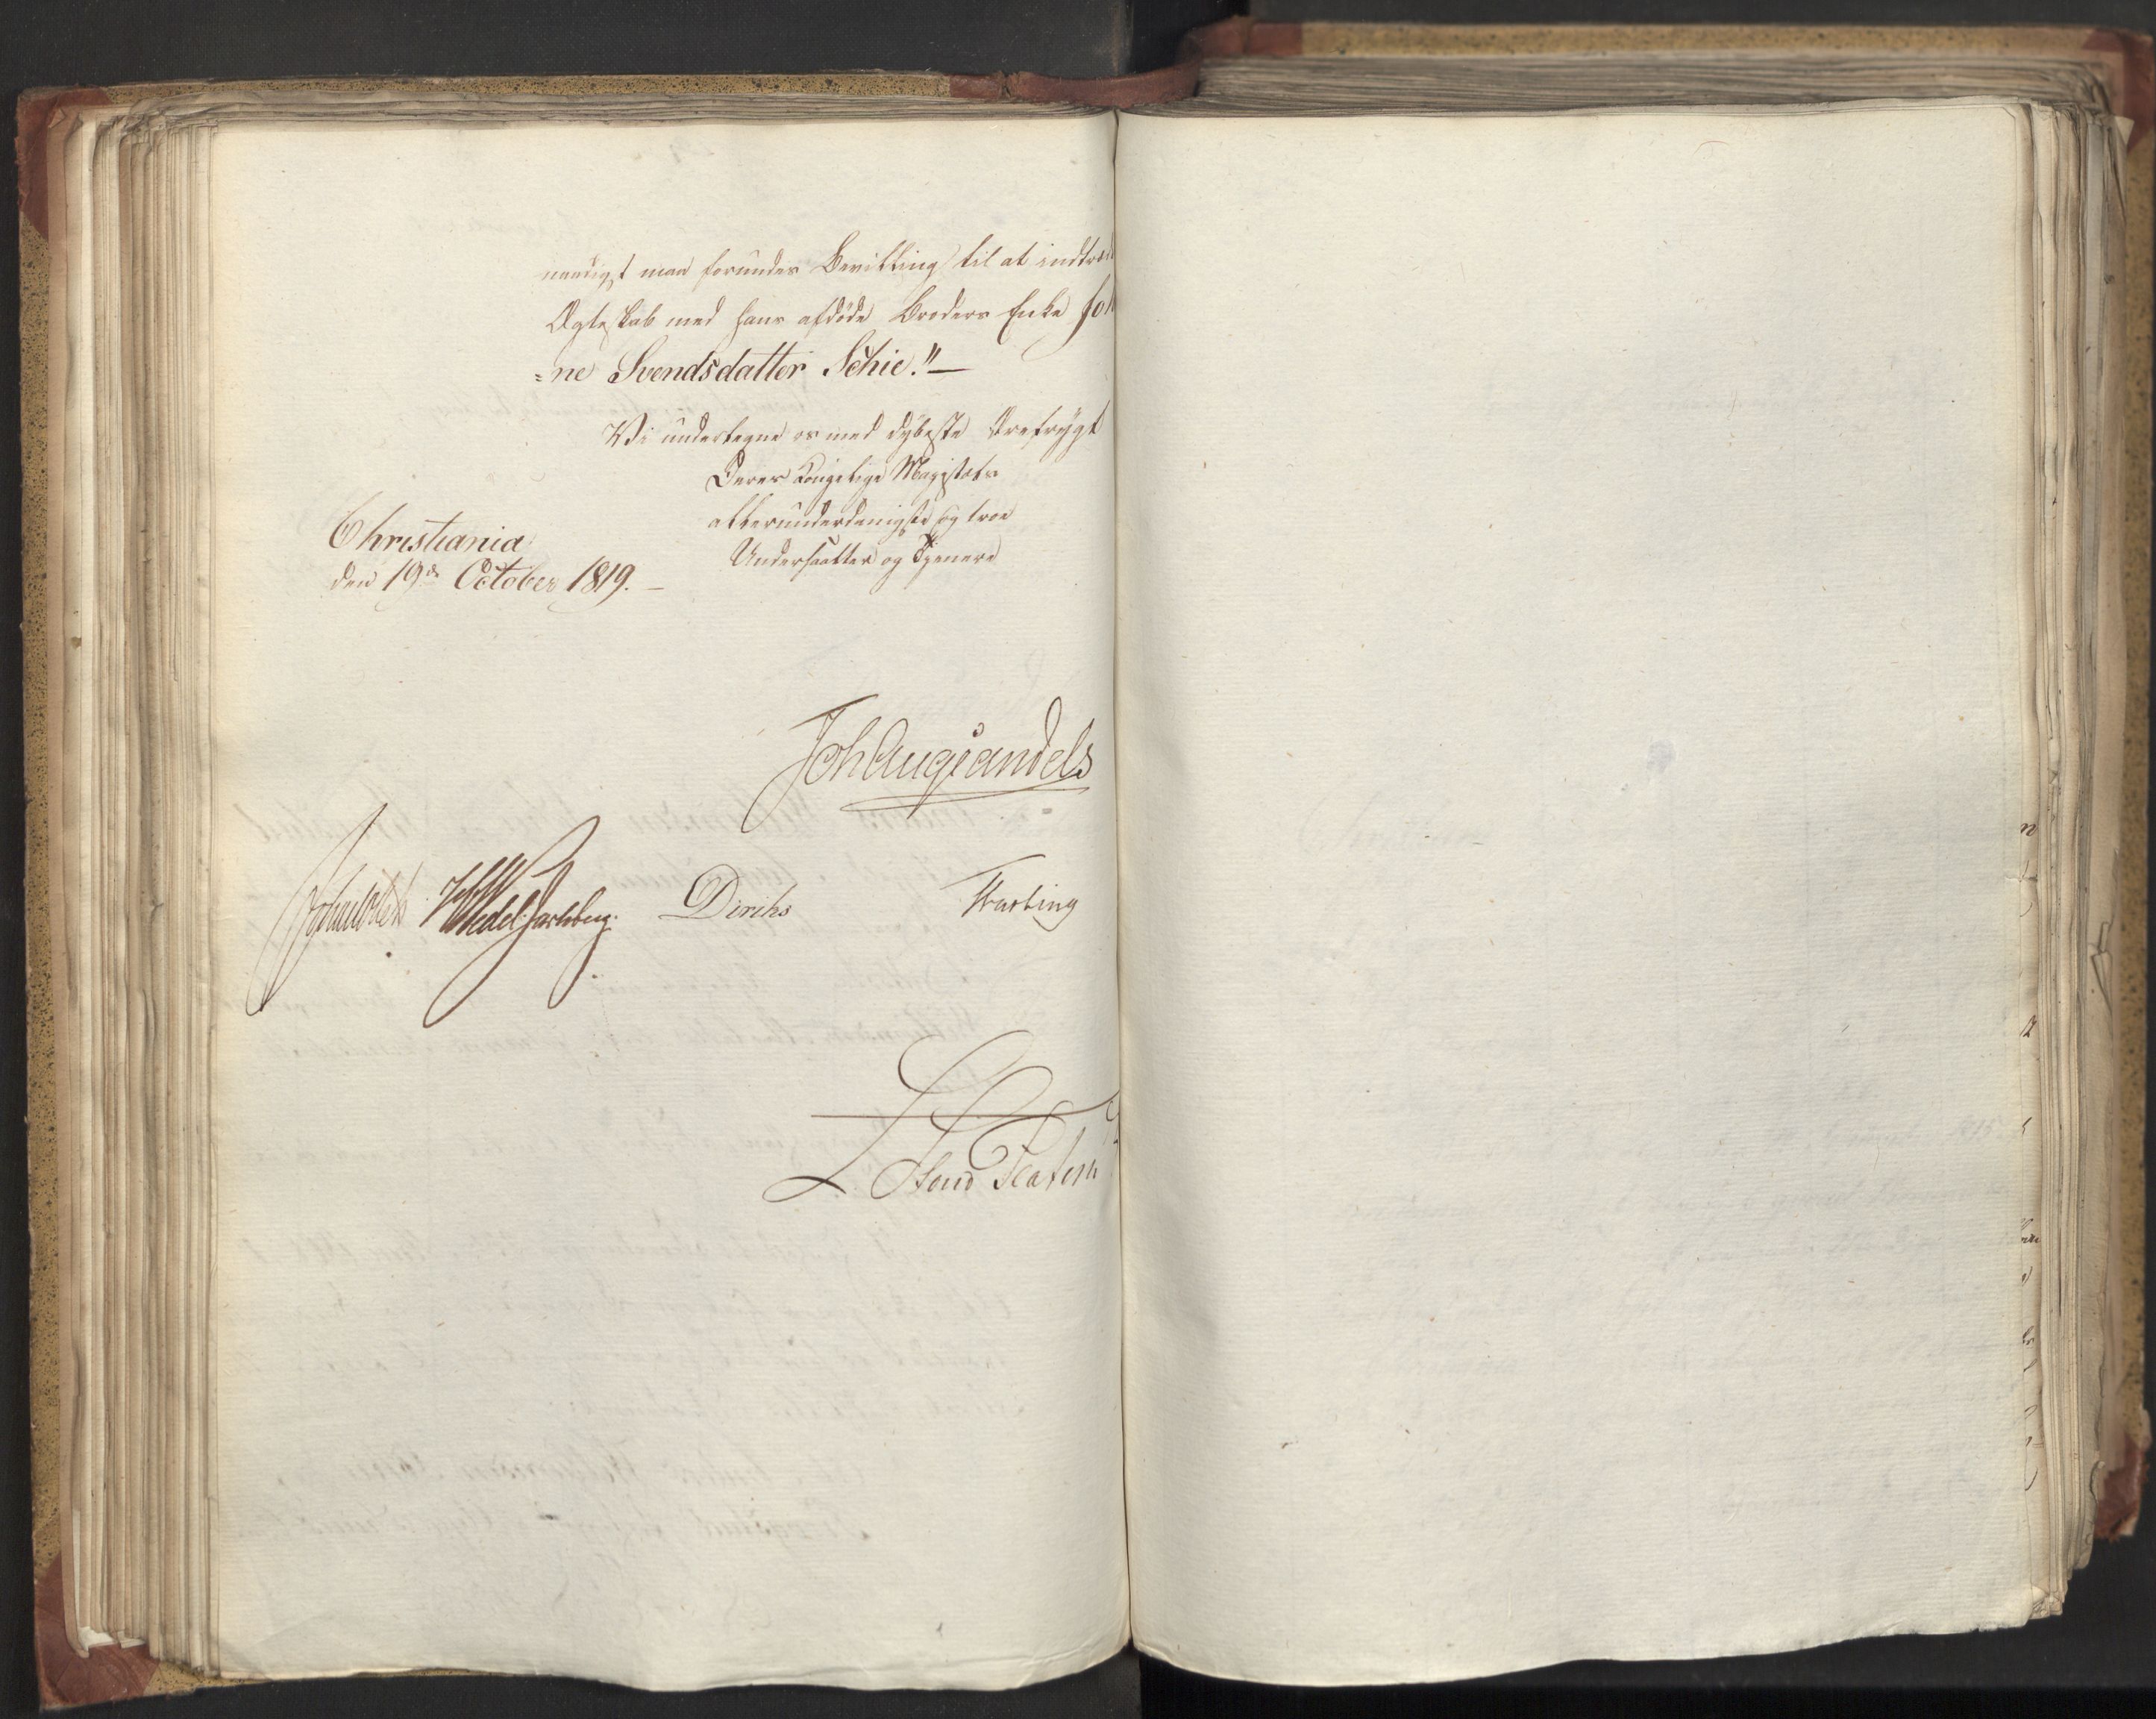 naadigst maa forundes Bevilling til at indtræde
Ægteskab med hans afdøde Broders Enke Joh
=ne Svendsdatter Schie."—
Vi undertegne os med dybeste Ærefrygt
Deres Kongelige Majestæts
allerunderdanigste og troe
Undersaatter og Tjenere
Christiania
den 19de October 1819. —
Joh Aug Sandels
JCollett HWedel Jarlsberg. Diriks Krebting